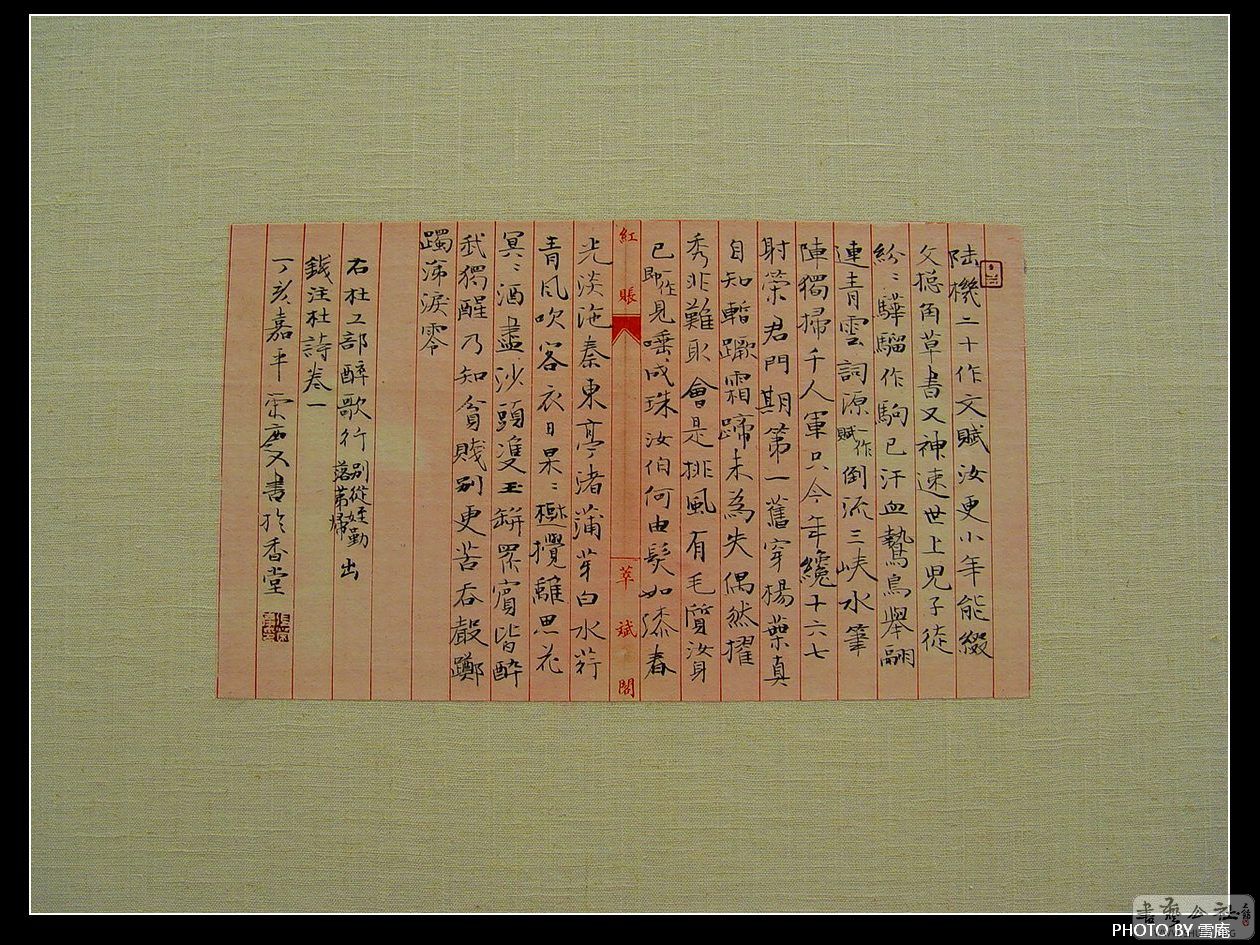 陸機二十作文賦汝更小年能綴
文揔角草書又神速世上兒子徒
紛〻驊騮作駒已汗血鷙鳥舉翮
連青雲詞源一作賦倒流三峽水筆
陣獨掃千人軍只今年纔十六七
射策君門期第一舊穿楊葉真
自知暫蹶霜蹄未為失偶然擢
秀非難取會是排風有毛質汝身
已一作即見唾成珠汝伯何由髮如漆春
紅賬
萃斌閣
光淡沲秦東亭渚蒲芽白水荇
青風吹客衣日杲〻樹攪離思花
冥〻酒盡沙頭雙玉缾眾賓皆醉
我獨醒乃知貧賤別更苦吞聲躑
躅涕淚零
右杜工部醉歌行別從姪勤落第歸出
錢注杜詩卷一
丁亥嘉平 又書於香堂
書藝公社
PHOTO BY 雪庵